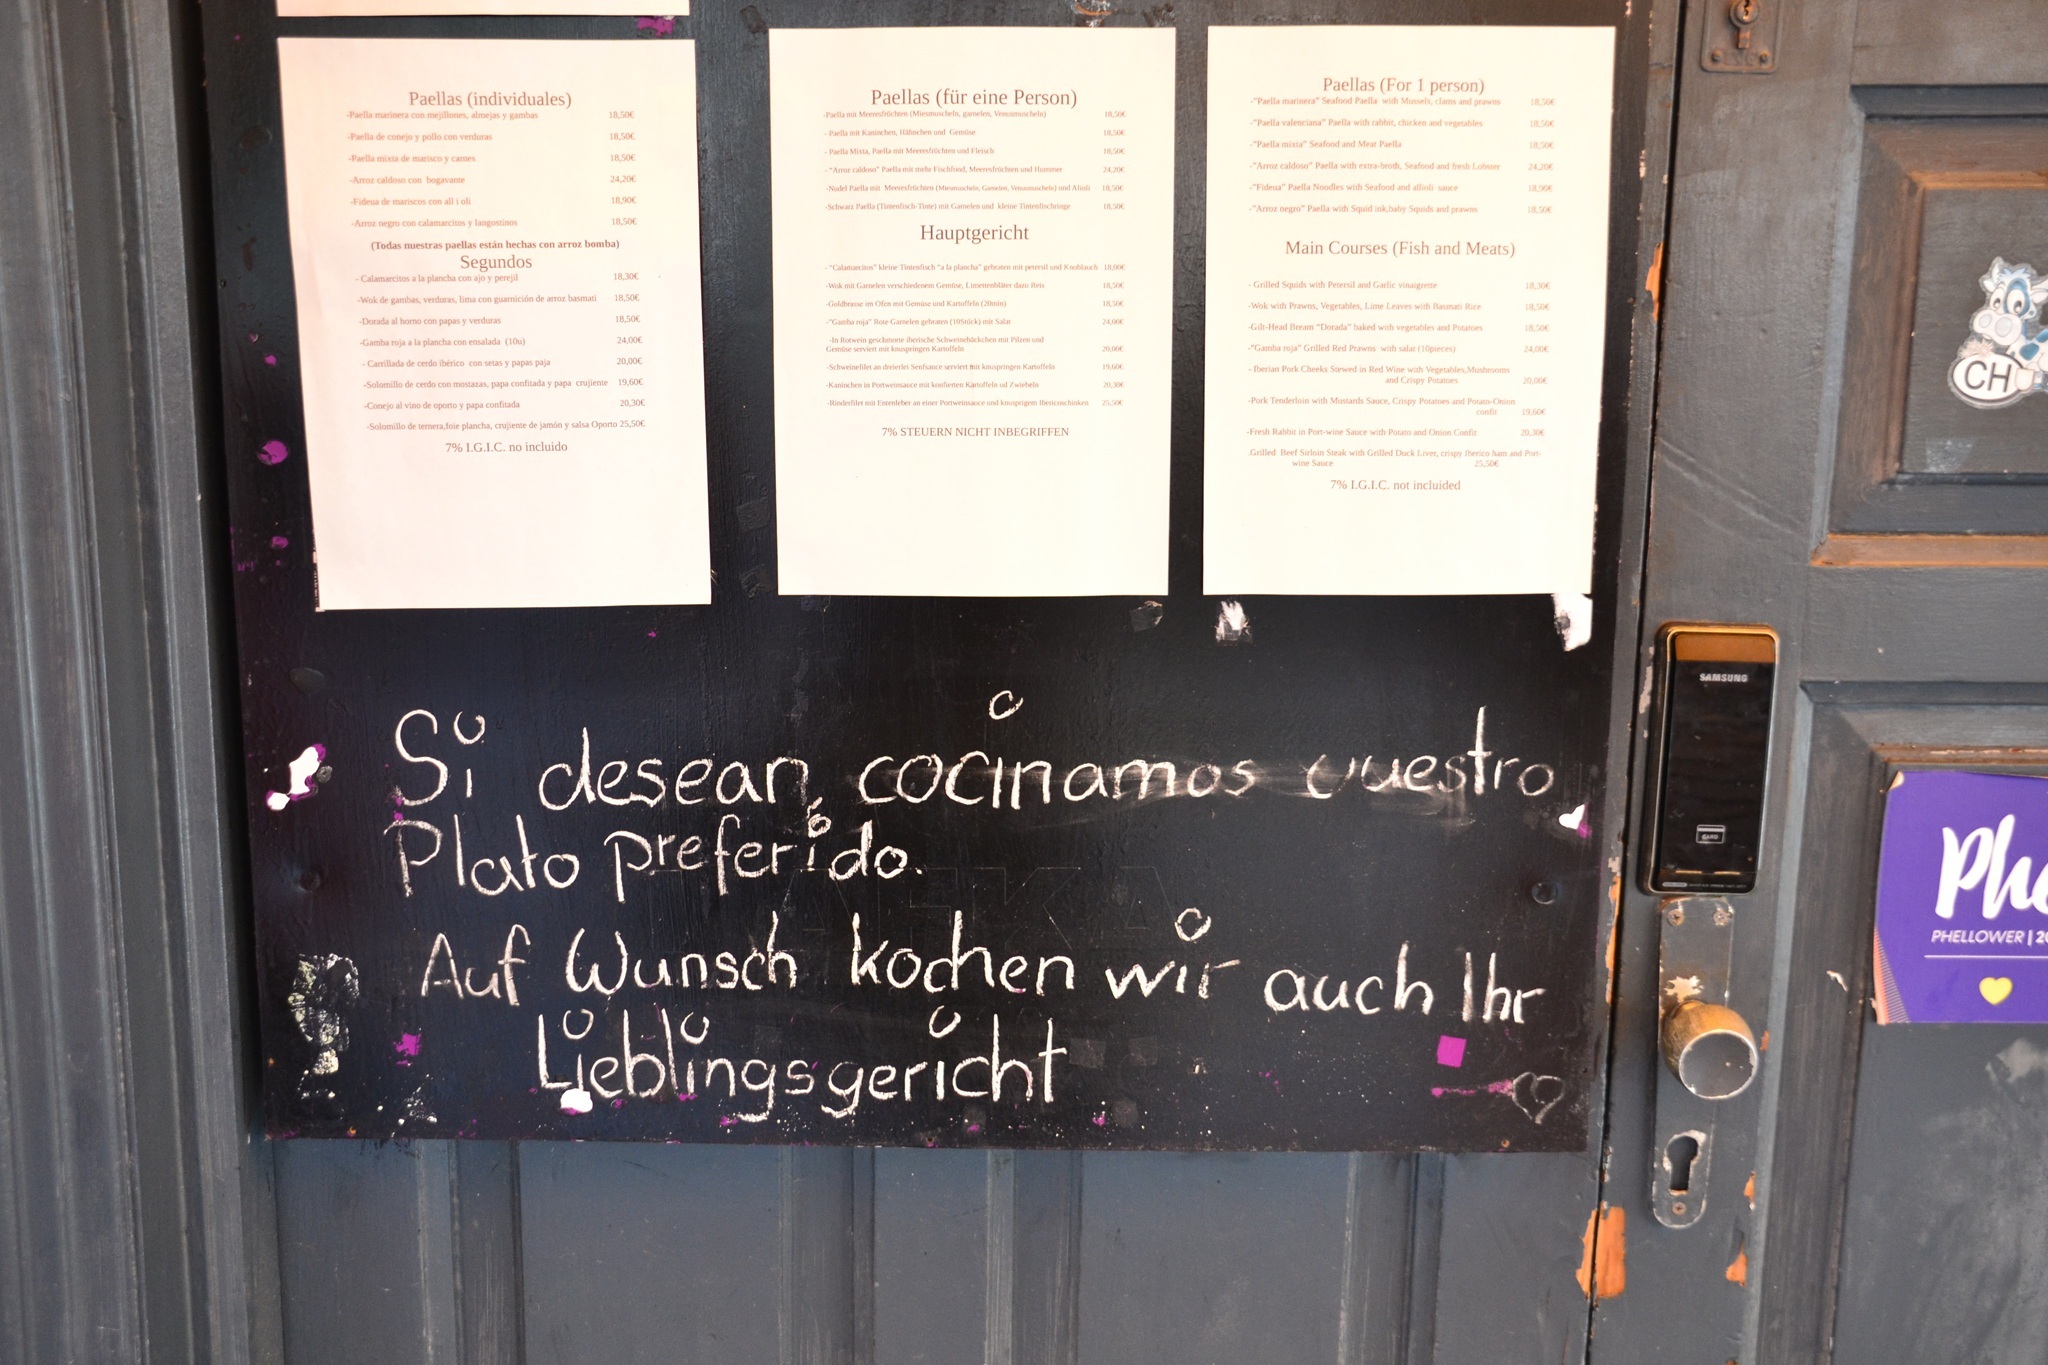 Paellas (individuales)
-Paella marinera con mejillones, almejas y gambas 18,50€
-Paella de conejo y pollo con verduras 18,50€
-Paella mixta de marisco y carnes 18,50€
-Arroz caldoso con bogavante 24,20€
-Fideua de mariscos con all i oli 18,90€
-Arroz negro con calamarcitos y langostinos 18,50€
(Todas nuestras paellas están hechas con arroz bomba)
Segundos
- Calamarcitos a la plancha con ajo y perejil 18,30€
-Wok de gambas, verduras, lima con guarnición de arroz basmati 18,50€
-Dorada al horno con papas y verduras 18,50€
-Gamba roja a la plancha con ensalada (10u) 24,00€
- Carrillada de cerdo ibérico con setas y papas paja 20,00€
-Solomillo de cerdo con mostazas, papa confitada y papa crujiente 19,60€
-Conejo al vino de oporto y papa confitada 20,30€
-Solomillo de ternera,foie plancha, crujiente de jamón y salsa Oporto 25,50€
7% I.G.I.C. no incluido
Paellas (für eine Person)
-Paella mit Meeresfrüchten (Miesmuscheln, garnelen, Venusmuscheln) 18,50€
- Paella mit Kaninchen, Hähnchen und Gemüse 18,50€
- Paella Mixta, Paella mit Meeresfrüchten und Fleisch 18,50€
- "Arroz caldoso" Paella mit mehr Fischfond, Meeresfrüchten und Hummer 24,20€
-Nudel Paella mit Meeresfrüchten (Miesmuscheln, Garnelen, Venusmuscheln) und Alioli 18,50€
-Schwarz Paella (Tintenfisch-Tinte) mit Garnelen und kleine Tintenfischringe 18,50€
Hauptgericht
- "Calamarcitos" kleine Tintenfisch "a la plancha" gebraten mit petersil und Knoblauch 18,00€
-Wok mit Garnelen verschiedenem Gemüse, Limettenbläter dazu Reis 18,50€
-Goldbrasse im Ofen mit Gemüse und Kartoffeln (20min) 18,50€
-"Gamba roja" Rote Garnelen gebraten (10Stück) mit Salat 24,00€
-In Rotwein geschmorte iberische Schweinebäckchen mit Pilzen und
Gemüse serviert mit knuspringen Kartoffeln 20,00€
-Schweinefilet an dreierlei Senfsauce serviert mit knuspringen Kartoffeln 19,60€
-Kaninchen in Portweinsauce mit konfierten Kartoffeln od Zwiebeln 20,30€
-Rinderfilet mit Entenleber an einer Portweinsauce und knusprigem 25,50€
7% STEUERN NICHT INBEGRIFFEN
Paellas (For 1 person)
-"Paella marinera" Seafood Paella with Mussels, clams and prawns 18,50€
-"Paella valenciana" Paella with rabbit, chicken and vegetables 18,50€
-"Paella mixta" Seafood and Meat Paella 18,50€
-"Arroz caldoso" Paella with extra-broth, Seafood and fresh Lobster 24,20€
-"Fideua" Paella Noodles with Seafood and allioli sauce 18,90€
-"Arroz negro" Paella with Squid ink,baby Squids and prawns 18,50€
Main Courses (Fish and Meats)
- Grilled Squids with Petersil and Garlic vinaigrette 18,30€
-Wok with Prawns, Vegetables, Lime Leaves with Basmati Rice 18,50€
-Gilt-Head Bream "Dorada" baked with vegetables and Potatoes 18,50€
-"Gamba roja" Grilled Red Prawns with salat (10pieces) 24,00€
- Iberian Pork Cheeks Stewed in Red Wine with Vegetables,Mushrooms
and Crispy Potatoes 20,00€
-Pork Tenderloin with Mustards Sauce, Crispy Potatoes and Potato-Onion
confit 19,60€
-Fresh Rabbit in Port-wine Sauce with Potato and Onion Confit 20,30€
.Grilled Beef Sirloin Steak with Grilled Duck Liver, crispy Iberico ham and Port-
wine Sauce 25,50€
7% I.G.I.C. not incluided
Si desean, cocinamos vuestro
Plato preferido.
Auf Wunsch kochen wir auch Ihr
Lieblingsgericht
SAMSUNG
CARD
CH
PHELLOWER | 20